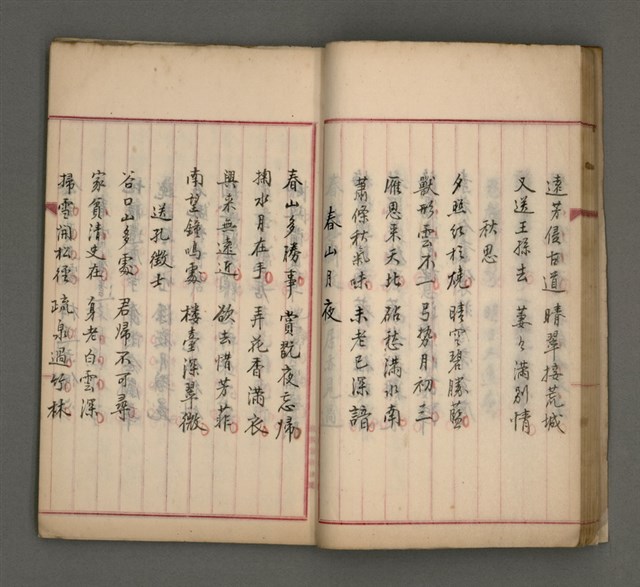 遠芳侵古道 晴翠接荒城
又送王孫去 萋々滿別情
秋思
夕照紅於燒 晴空碧勝藍
獸形雲不一 弓勢月初三
雁思來天北 砧愁滿水南
蕭條秋氣味 未老已深諳
春山月夜
春山多勝事 賞翫夜忘歸
掬水月在手 弄花香滿衣
興來無遠近 欲去惜芳菲
南望鐘鳴處 楼臺深翠微
送孔徴士
谷口山多處 君歸不可尋
家貧清史在 身老白雲深
掃雪開松徑 疏泉過竹林